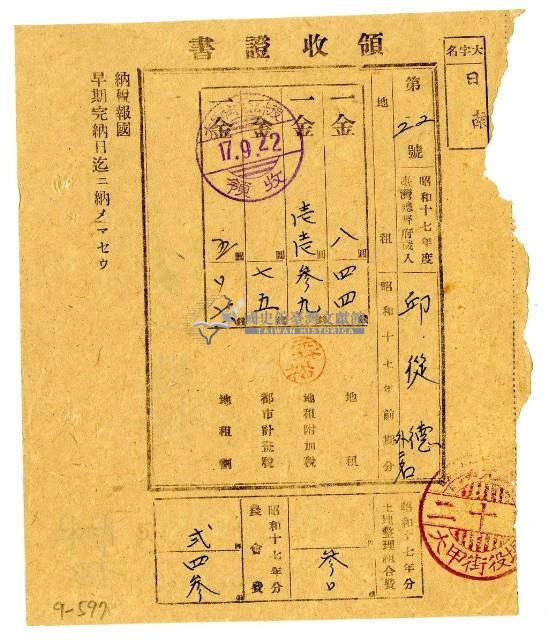 領收證書
大字名
日
第22號
昭和十七年度
臺灣總督府歲入
地租
昭和十七年前期分
邱從德
外 名
一金 八圓四四錢 地租
一金 壱壱圓參九錢 地租附加稅
一金 圓七五錢 都市計畫稅
一金 圓 錢 地租割
17.9.22
領收
昭和十七年分
土地整理組合費
參〇
昭和十七年分
農會費
弍四參
納稅報國
早期完納日迄ニ納メマセウ
大甲街役場
國史館臺灣文獻館
TAIWAN HISTORICA
9-597